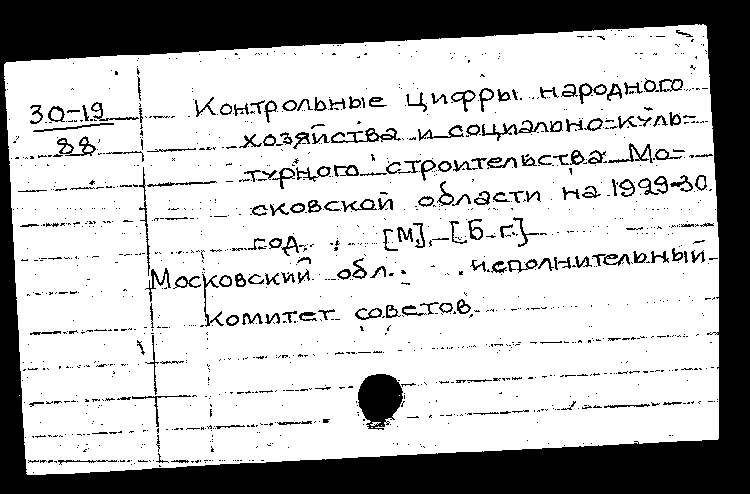 30-19
88
Контрольные цифры народного
хозяйства и социально-куль-
турного строительства Мо-
сковской области на 1929-30
год. [М], [Б.г.]
Московский обл. исполнительный
комитет советов.